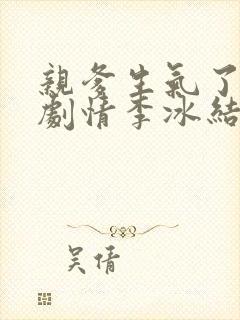 親爹生氣了
劇情李冰結
吴倩